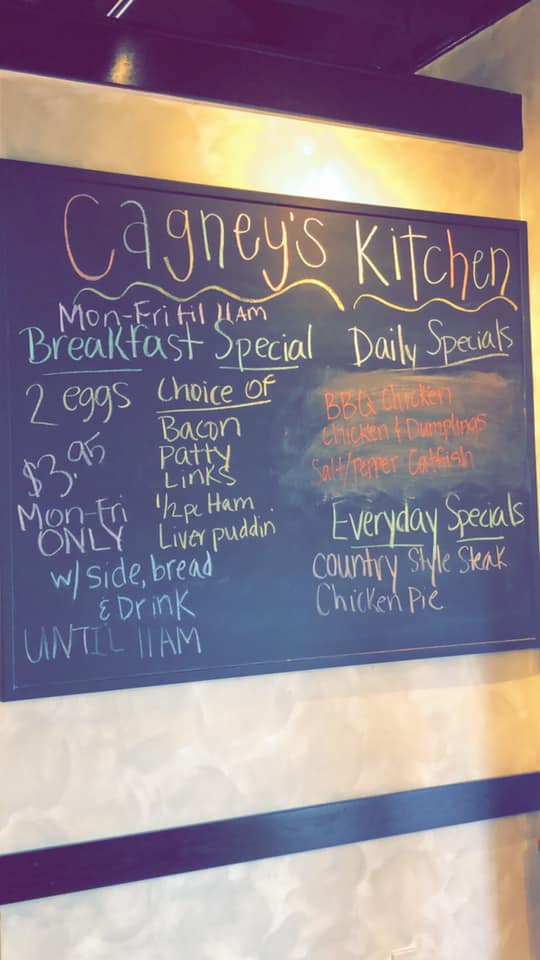 Cagney's Kitchen
Mon-Fri til 11AM
Breakfast Special
2 eggs
$3.95
Mon-Fri
ONLY
Choice OF
Bacon
Patty
Links
1/2 pc Ham
Liver puddin
w/ side, bread
& Drink
UNTIL 11AM
Daily Specials
BBQ Chicken
Chicken & Dumplings
Salt/Pepper Catfish
Everyday Specials
Country Style Steak
Chicken Pie